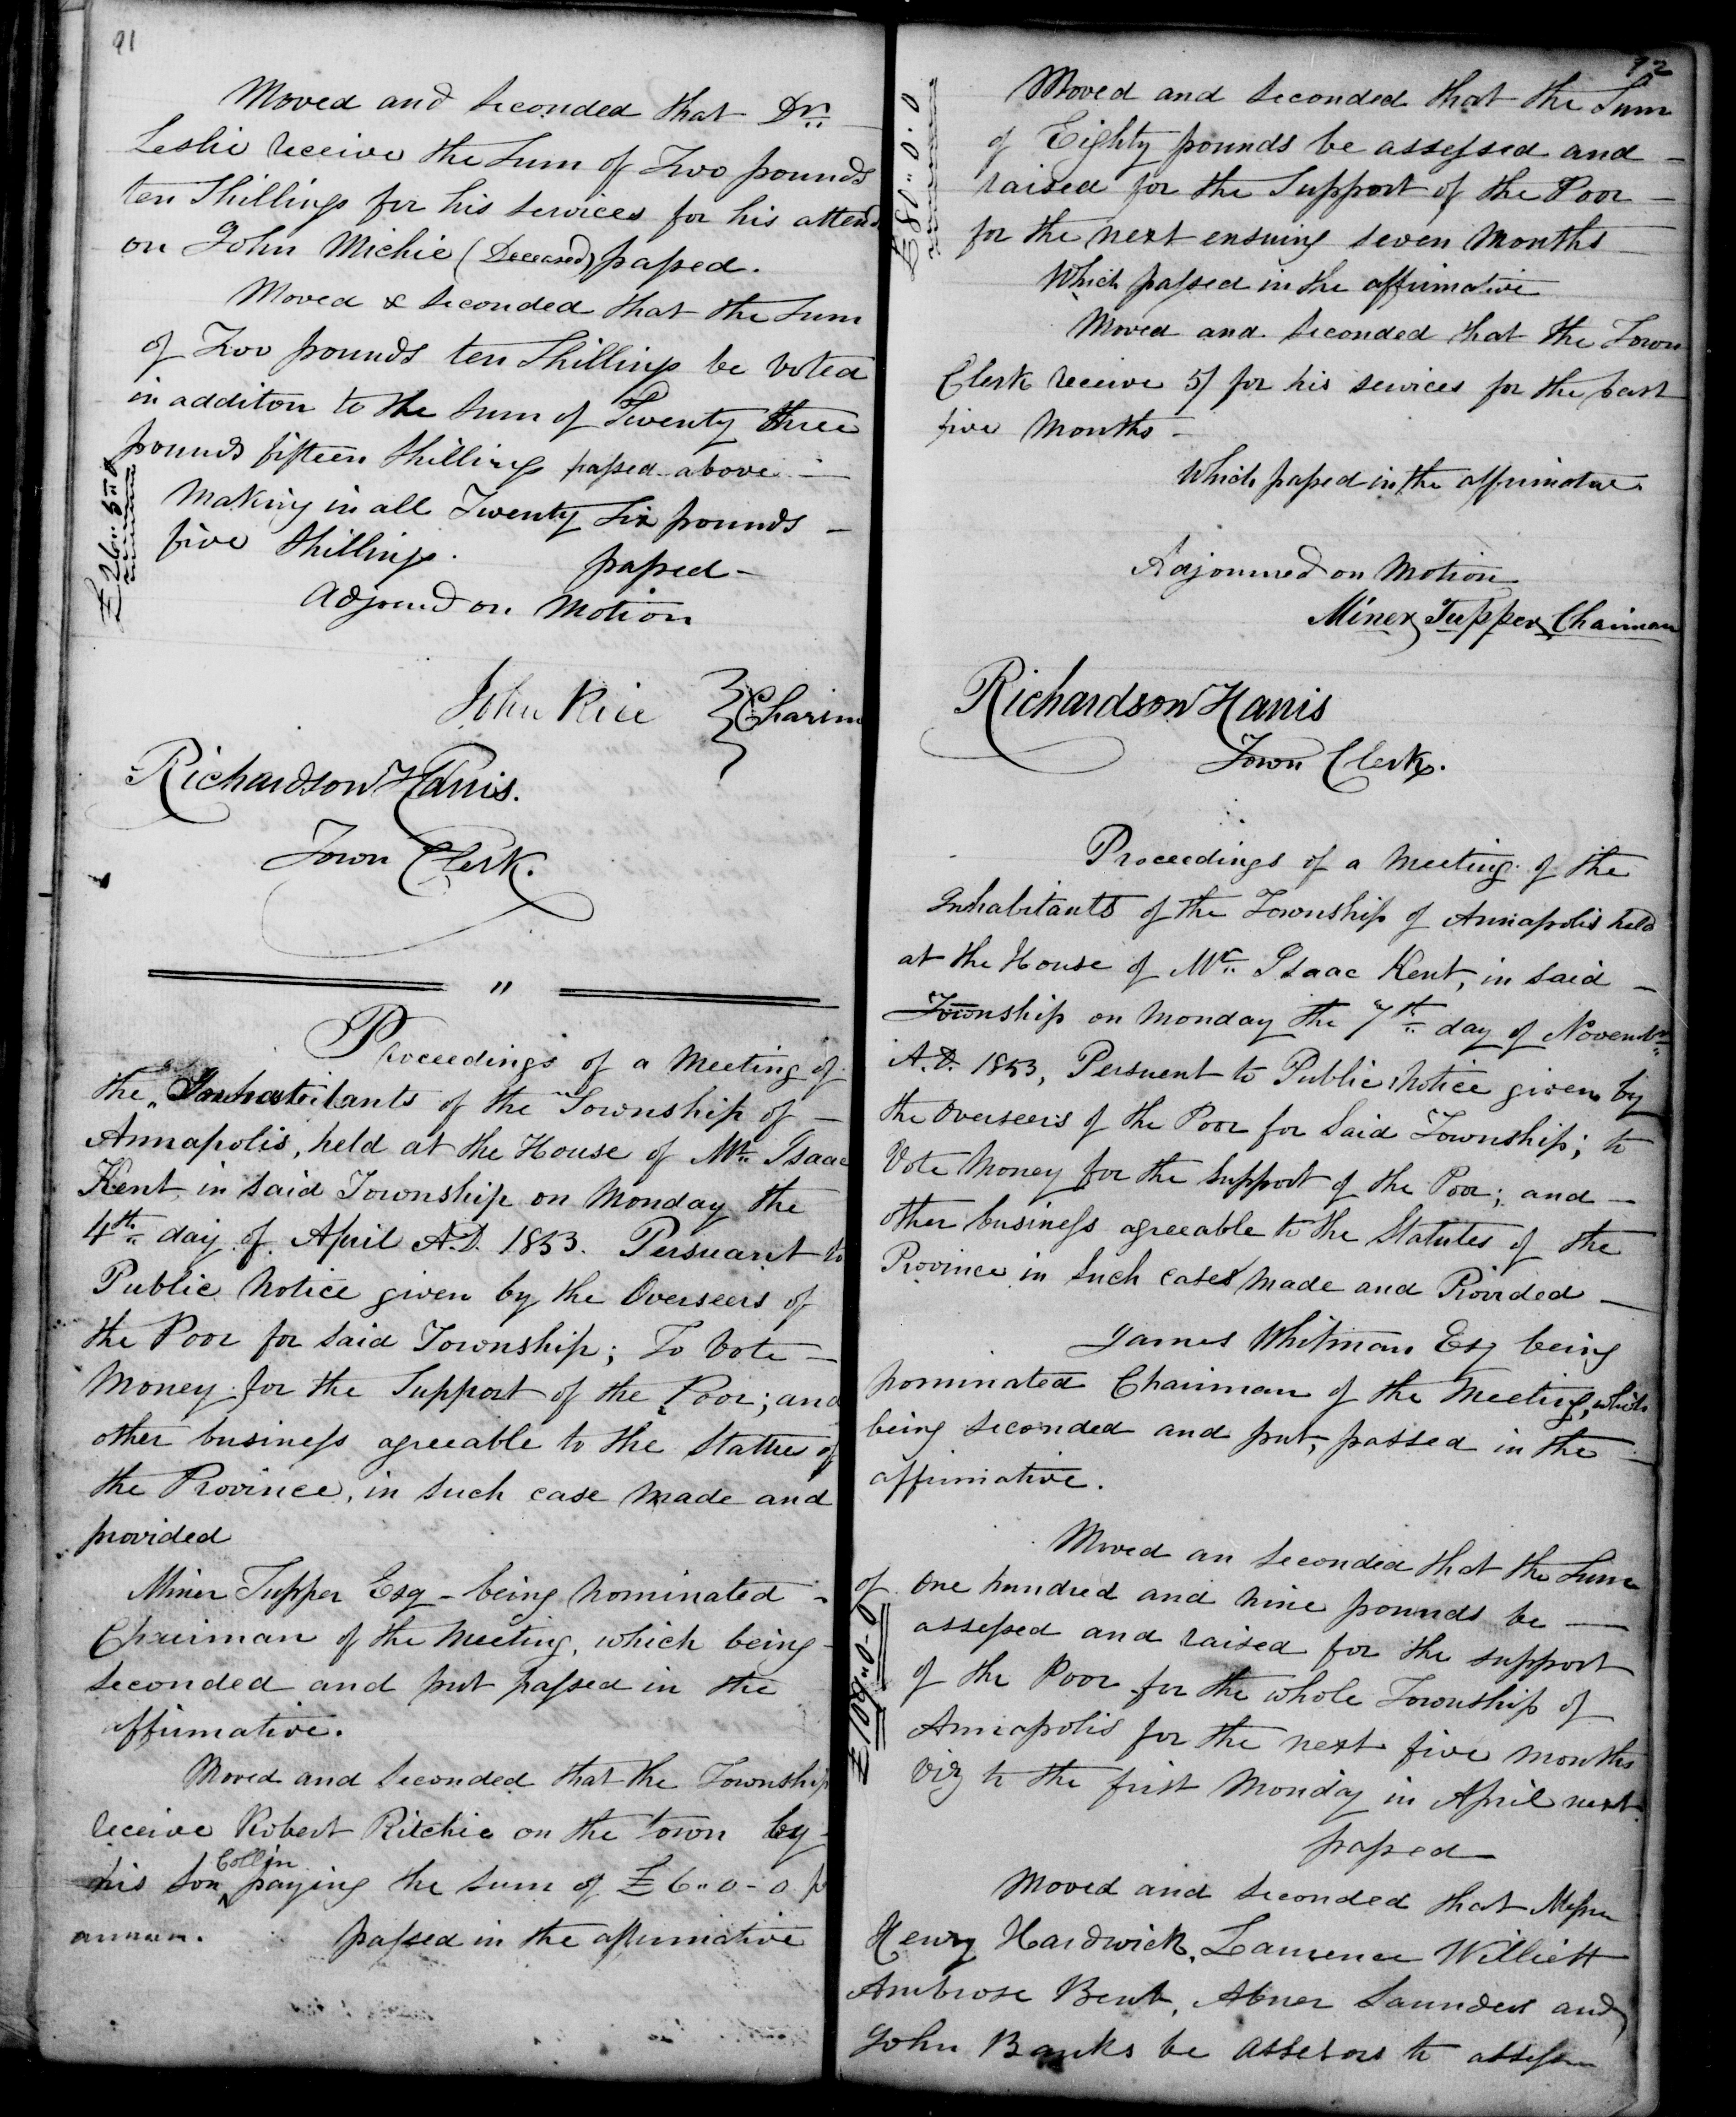 91
Moved and Seconded that Dr.
Leslie receive the Sum of Two pounds
ten Shillings for his services for his attend
on John Michie (Deceased) passed.
Moved & Seconded that the Sum
of Two pounds ten Shillings be voted
in additon to the Sum of Twenty three
pounds fifteen Shillings passed above -
Making in all Twenty Six pounds -
five Shillings. passed -
£26 " 5 " 0
Adjournd on Motion
John Rice } Chairm
Richardson Harris.
Town Clerk.
"
Proceedings of a Meeting of
the Inhabitants of the Township of -
Annapolis, held at the House of Mr. Isaac
Kent in said Township on Monday the
4th day of April A.D. 1853. Persuant to
Public Notice given by the Overseers of
the Poor for said Township; To Vote -
Money for the Support of the Poor; and
other business agreeable to the Stattue of
the Province, in such case made and
provided
Miner Tupper Esq - being Nominated -
Chairman of the Meeting, which being -
Seconded and put passed in the
affirmative.
Moved and Seconded that the Township
receive Robert Ritchie on the town by -
his Son Collin paying the sum of £6 " 0 - 0 p
annum. passed in the affirmative
92
Moved and Seconded that the Sum
of Eighty pounds be assessed and -
raised for the Support of the Poor -
for the next ensuing seven Months
£80 " 0 . 0
Which passed in the affirmative
Moved and Seconded that the Town
Clerk receive 5/ for his services for the past
five Months -
Which passed in the affirmative
Adjourned on Motion
Miner Tupper Chairman
Richardson Harris
Town Clerk.
Proceedings of a Meeting of the
Inhabitants of the Township of Annapolis held
at the House of Mr. Isaac Kent, in said -
Township on Monday the 7th day of Novembr
A.D. 1853, Persuent to Public Notice given by
the Overseers of the Poor for Said Township; to
Vote Money for the support of the Poor; and -
other business agreeable to the Statutes of the
Province in such cases made and Provided -
James Whitman Esq being
Nominated Chairman of the Meeting, which
being Seconded and put, passed in the -
affirmative.
Moved an Seconded that the Sum
of One hundred and nine pounds be -
assessed and raised for the support
of the Poor for the whole Township of
Annapolis for the next five months
viz to the first Monday in April next
£109 " 0 - 0
passed
Moved and Seconded that Messrs
Henry Hardwick, Laurence Williett
Ambrose Bent, Abner Saunders and
John Banks be Assesors to assess